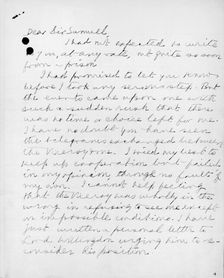 Dear Sir Samuel,
I had not expected to write
to you, at any rate, not quite so soon
from a prison
I had promised to let you know
before I took any serious step. But
the events came upon one with
such a sudden rush that there
was no time or choice left for me.
I have no doubt you have seen
the telegrams exchanged between
the Viceroy & me. I tried my best to
keep up cooperation but failed
in my opinion, through no fault of
my own. I cannot help feeling
that the Viceroy was wholly in the
wrong in refusing to see me except
on impossible conditions. I have
just written a personal letter to
Lord Willingdon urging him to re-
consider his position.